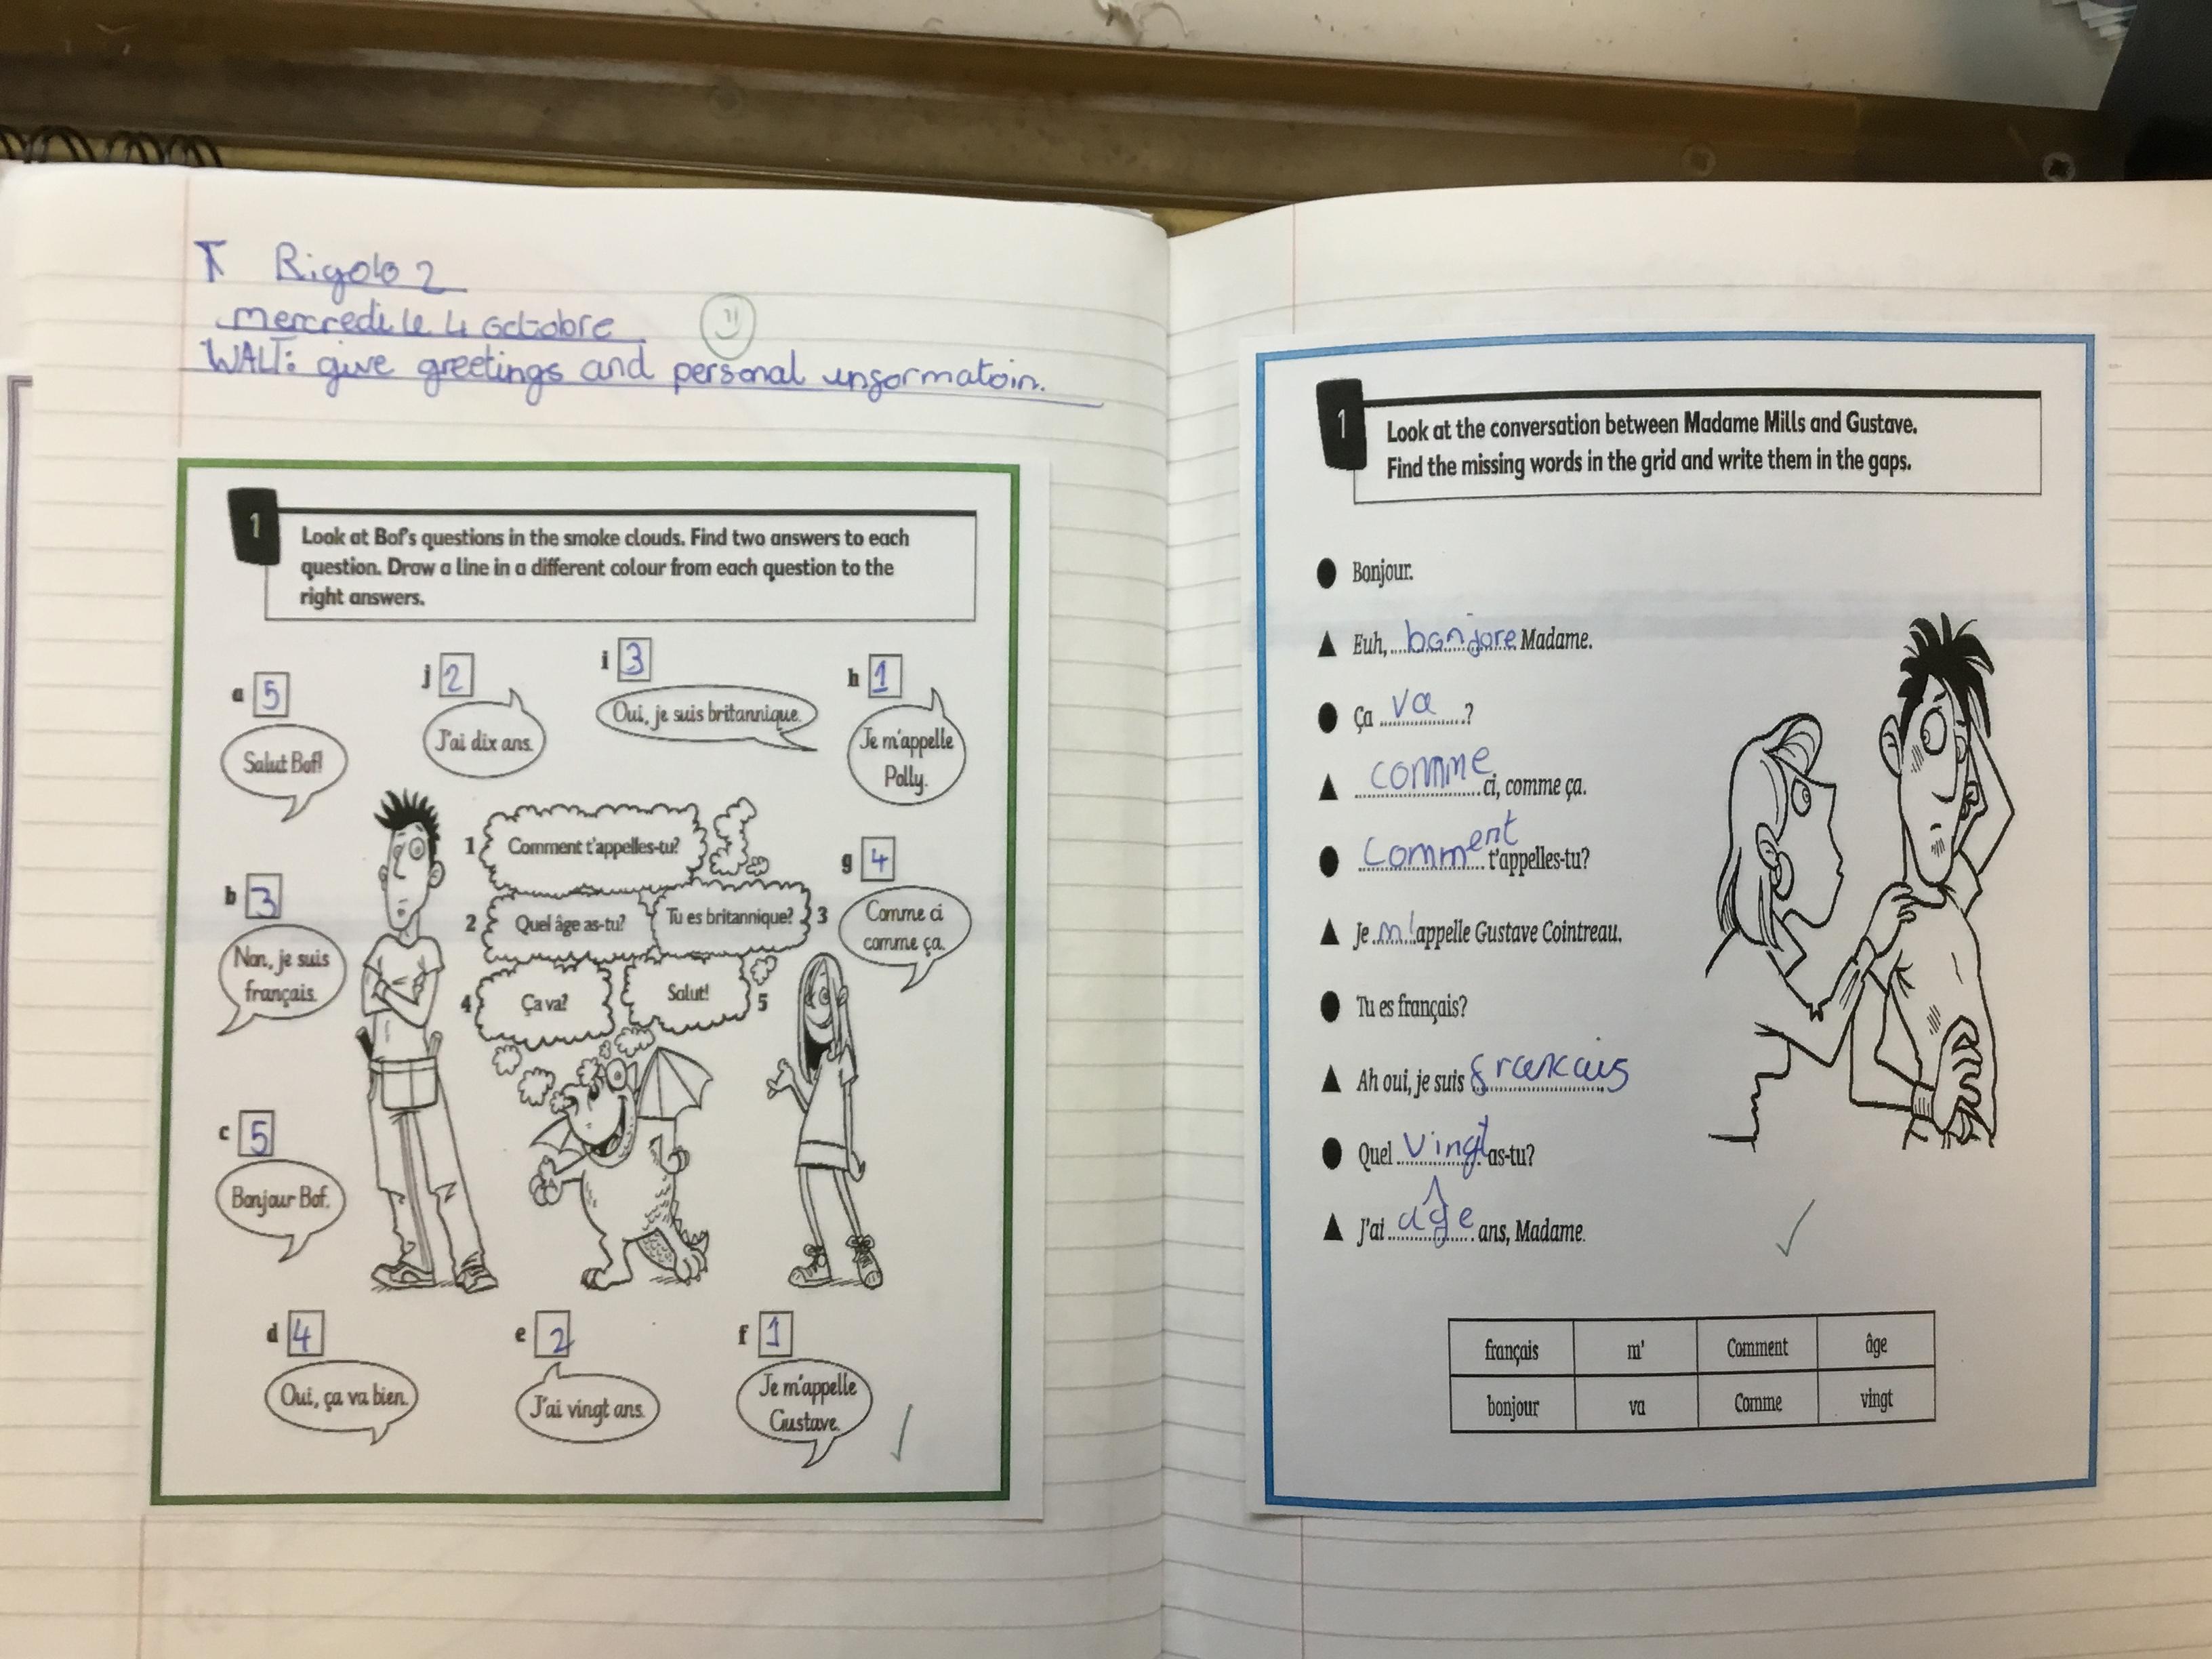 T Rigolo 2
mercredi le 4 octobre
WALT: give greetings and personal unformatoin.
1
Look at Bof's questions in the smoke clouds. Find two answers to each
question. Draw a line in a different colour from each question to the
right answers.
a 5
Salut Bof!
j 2
J'ai dix ans.
i 3
Oui, je suis britannique.
h 1
Je m'appelle
Polly.
1 Comment t'appelles-tu?
2 Quel âge as-tu?
Tu es britannique? 3
4 Ça va?
Salut! 5
b 3
Non, je suis
français.
g 4
Comme ci
comme ça.
c 5
Bonjour Bof.
d 4
Oui, ça va bien.
e 2
J'ai vingt ans.
f 1
Je m'appelle
Gustave.
1
Look at the conversation between Madame Mills and Gustave.
Find the missing words in the grid and write them in the gaps.
Bonjour.
Euh, bonjore Madame.
Ça va ?
comme ci, comme ça.
Comment t'appelles-tu?
Je m' appelle Gustave Cointreau.
Tu es français?
Ah oui, je suis francais
Quel vingt as-tu?
J'ai âge ans, Madame.
français m' Comment âge
bonjour va Comme vingt